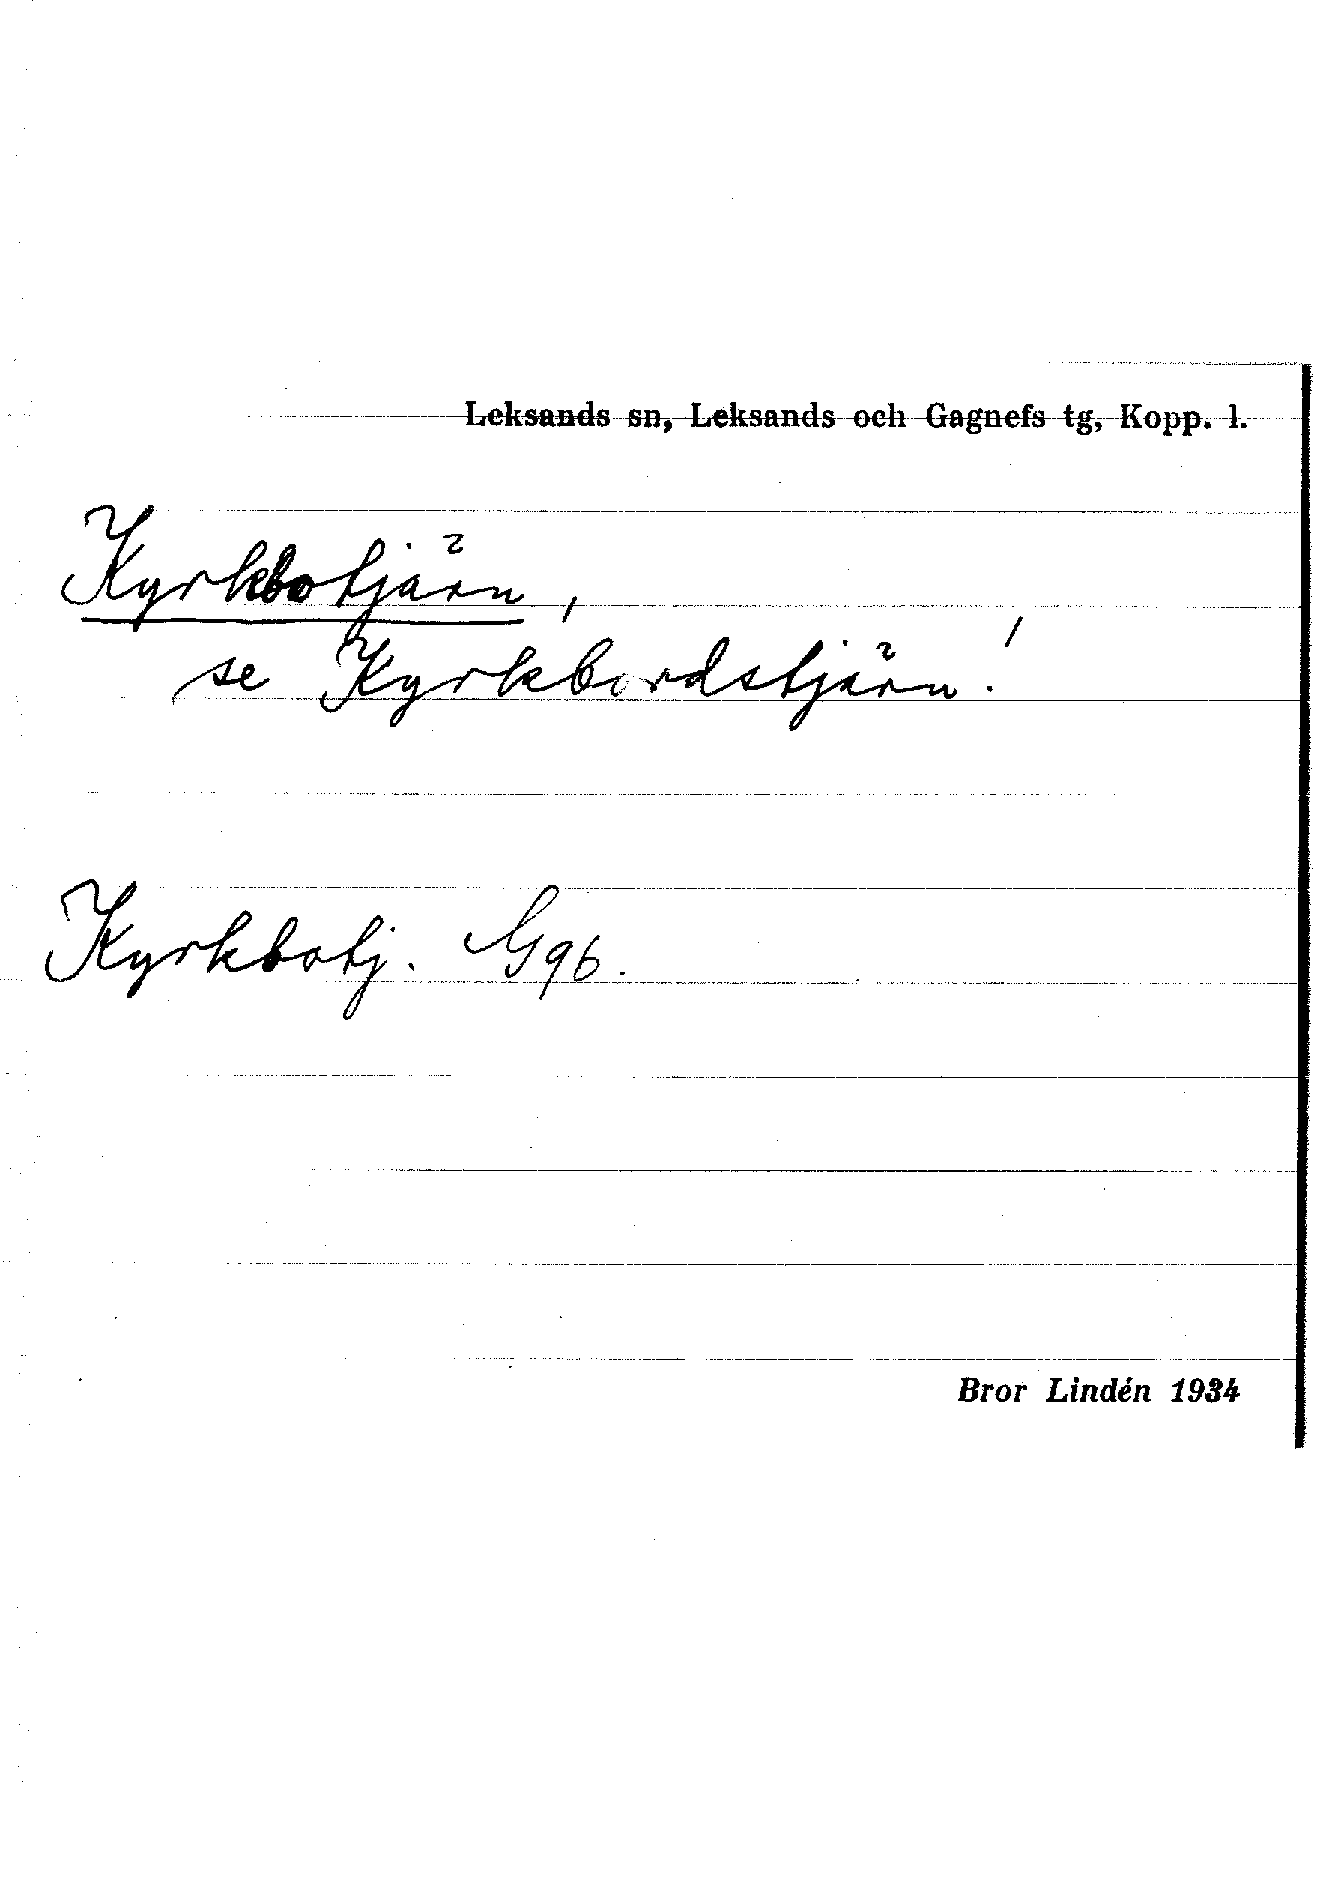 Leksands sn, Leksands och Gagnefs tg, Kopp. l.
Kyrkbotjärn,
se Kyrkbordstjärn!
Kyrkbotj. G96.
Bror Lindén 1934